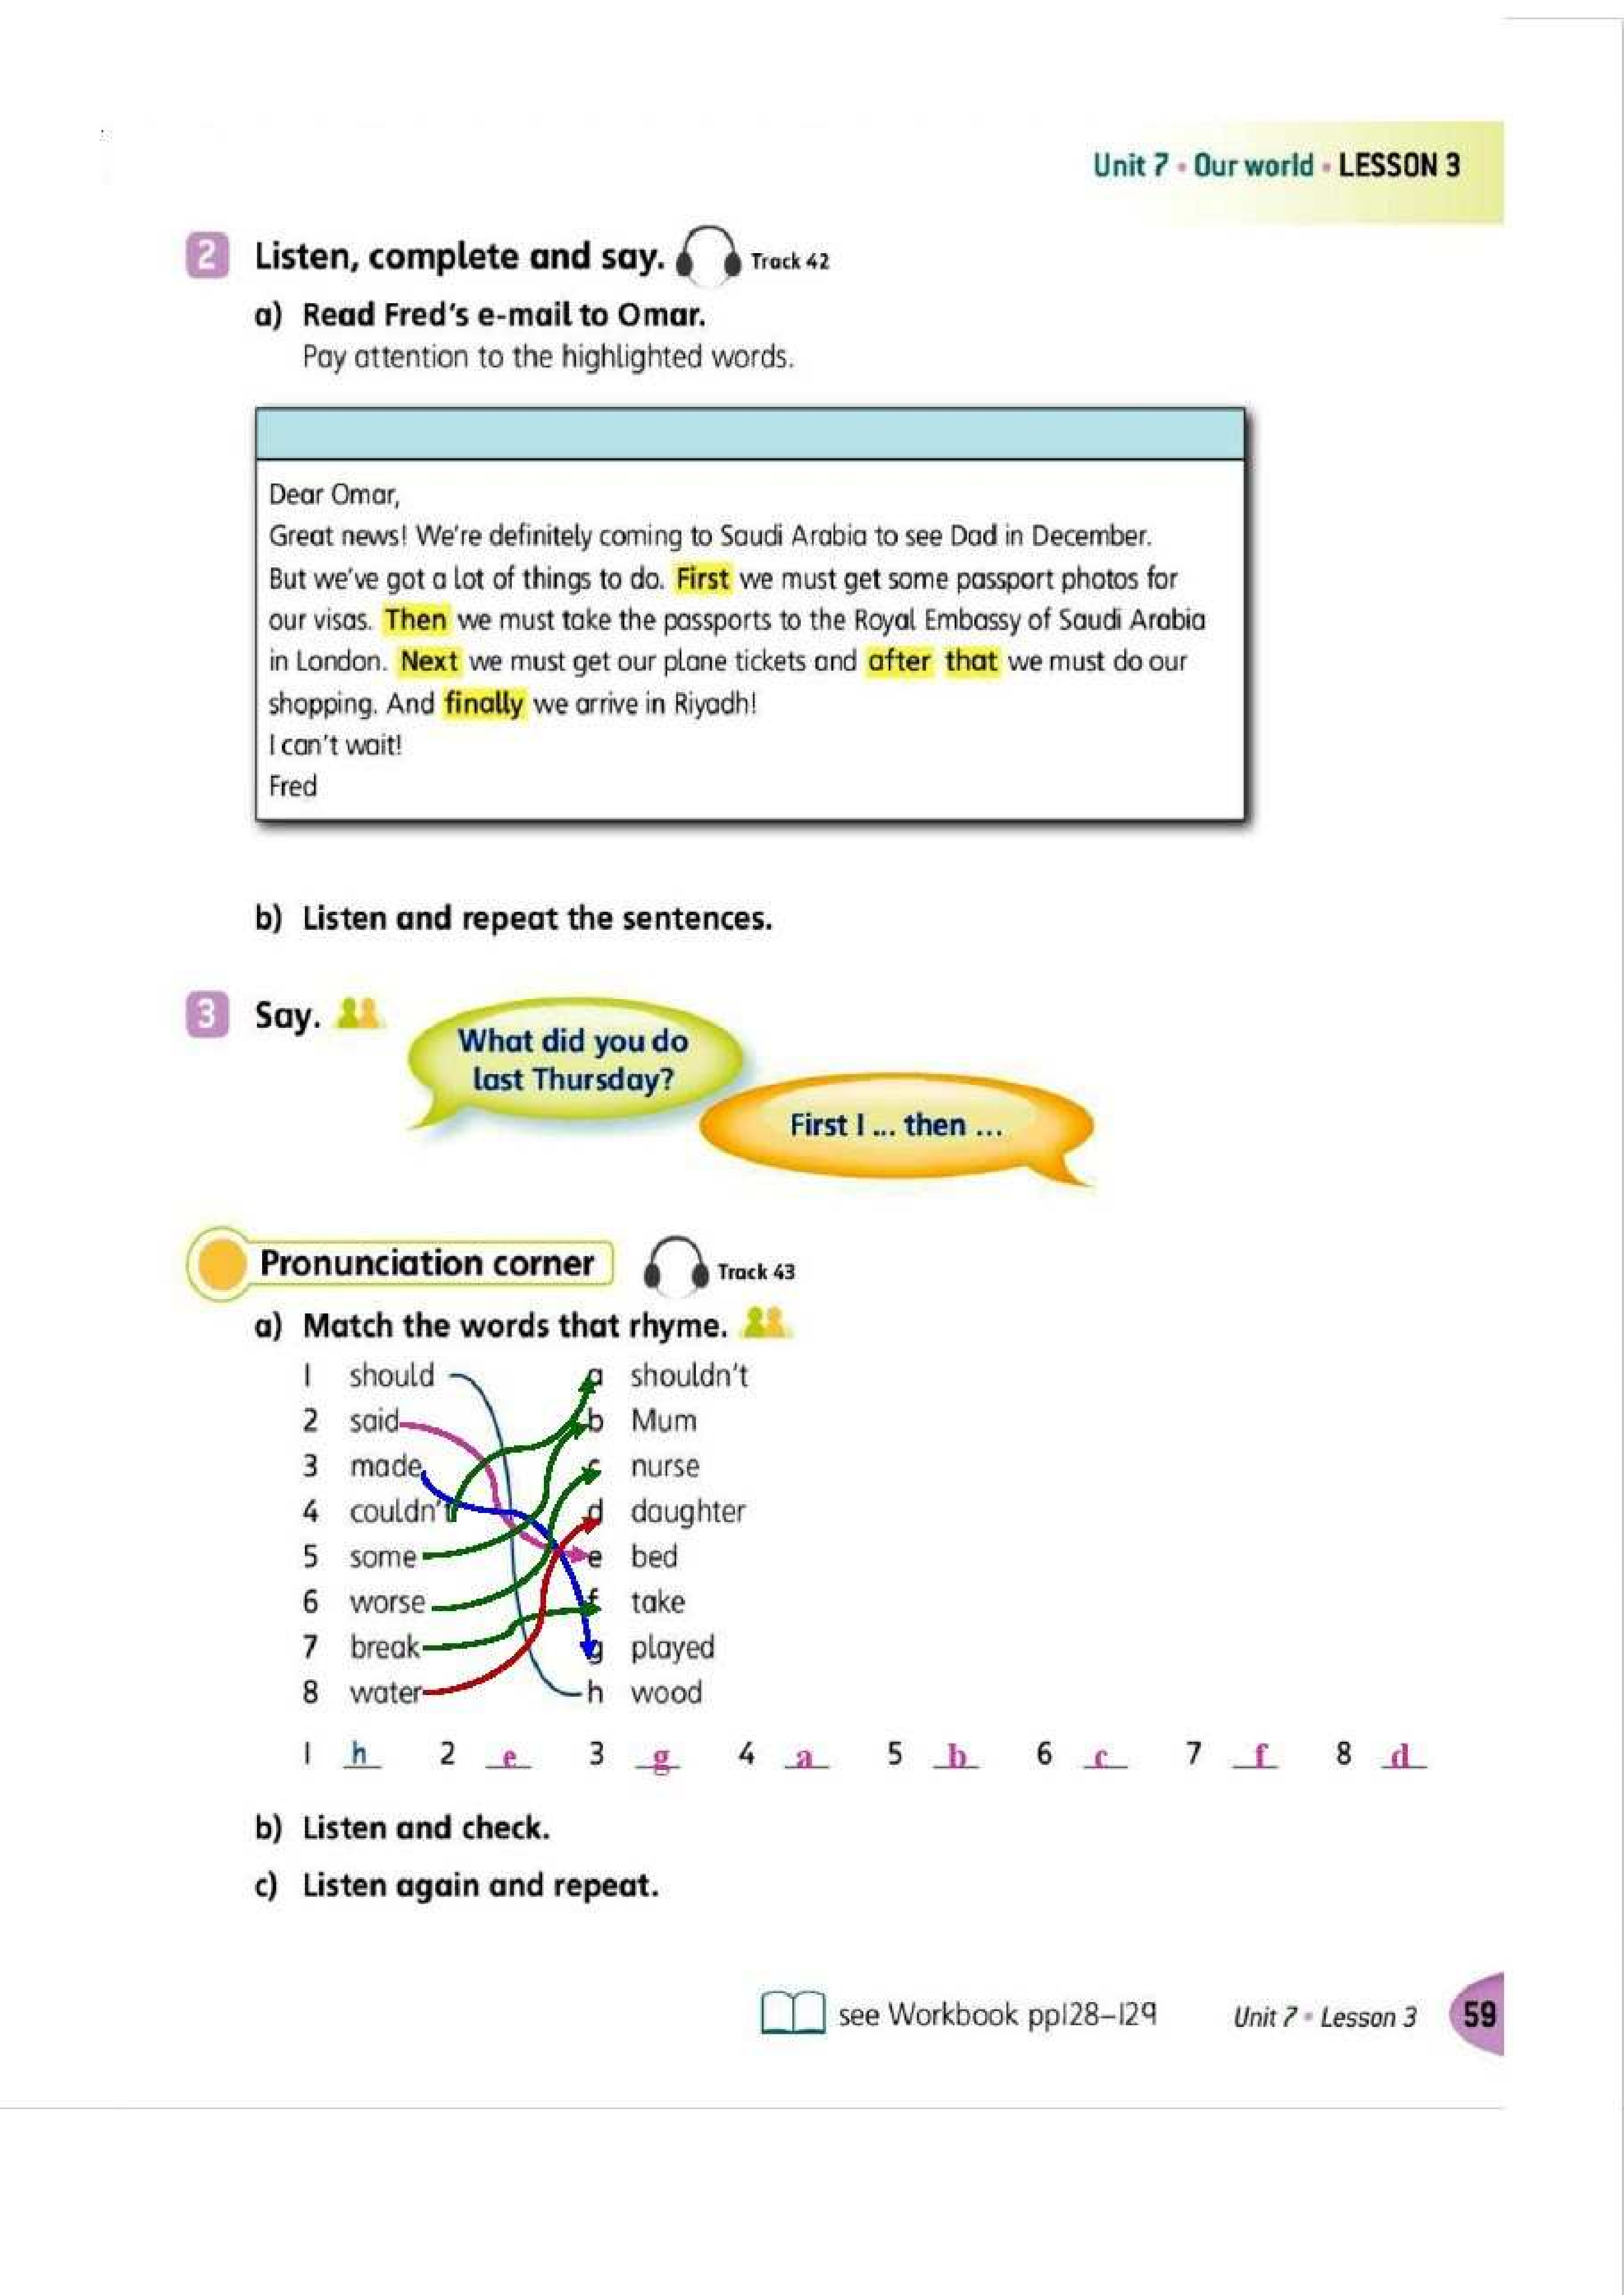 Unit 7 • Our world • LESSON 3
2 Listen, complete and say. Track 42
a) Read Fred's e-mail to Omar.
Pay attention to the highlighted words.
Dear Omar,
Great news! We're definitely coming to Saudi Arabia to see Dad in December.
But we've got a lot of things to do. First we must get some passport photos for
our visas. Then we must take the passports to the Royal Embassy of Saudi Arabia
in London. Next we must get our plane tickets and after that we must do our
shopping. And finally we arrive in Riyadh!
I can't wait!
Fred
b) Listen and repeat the sentences.
3 Say.
What did you do
last Thursday?
First I ... then ...
Pronunciation corner Track 43
a) Match the words that rhyme.
1 should a shouldn't
2 said b Mum
3 made c nurse
4 couldn't d daughter
5 some e bed
6 worse f take
7 break g played
8 water h wood
1 h 2 e 3 g 4 a 5 b 6 c 7 f 8 d
b) Listen and check.
c) Listen again and repeat.
see Workbook pp128–129 Unit 7 • Lesson 3 59